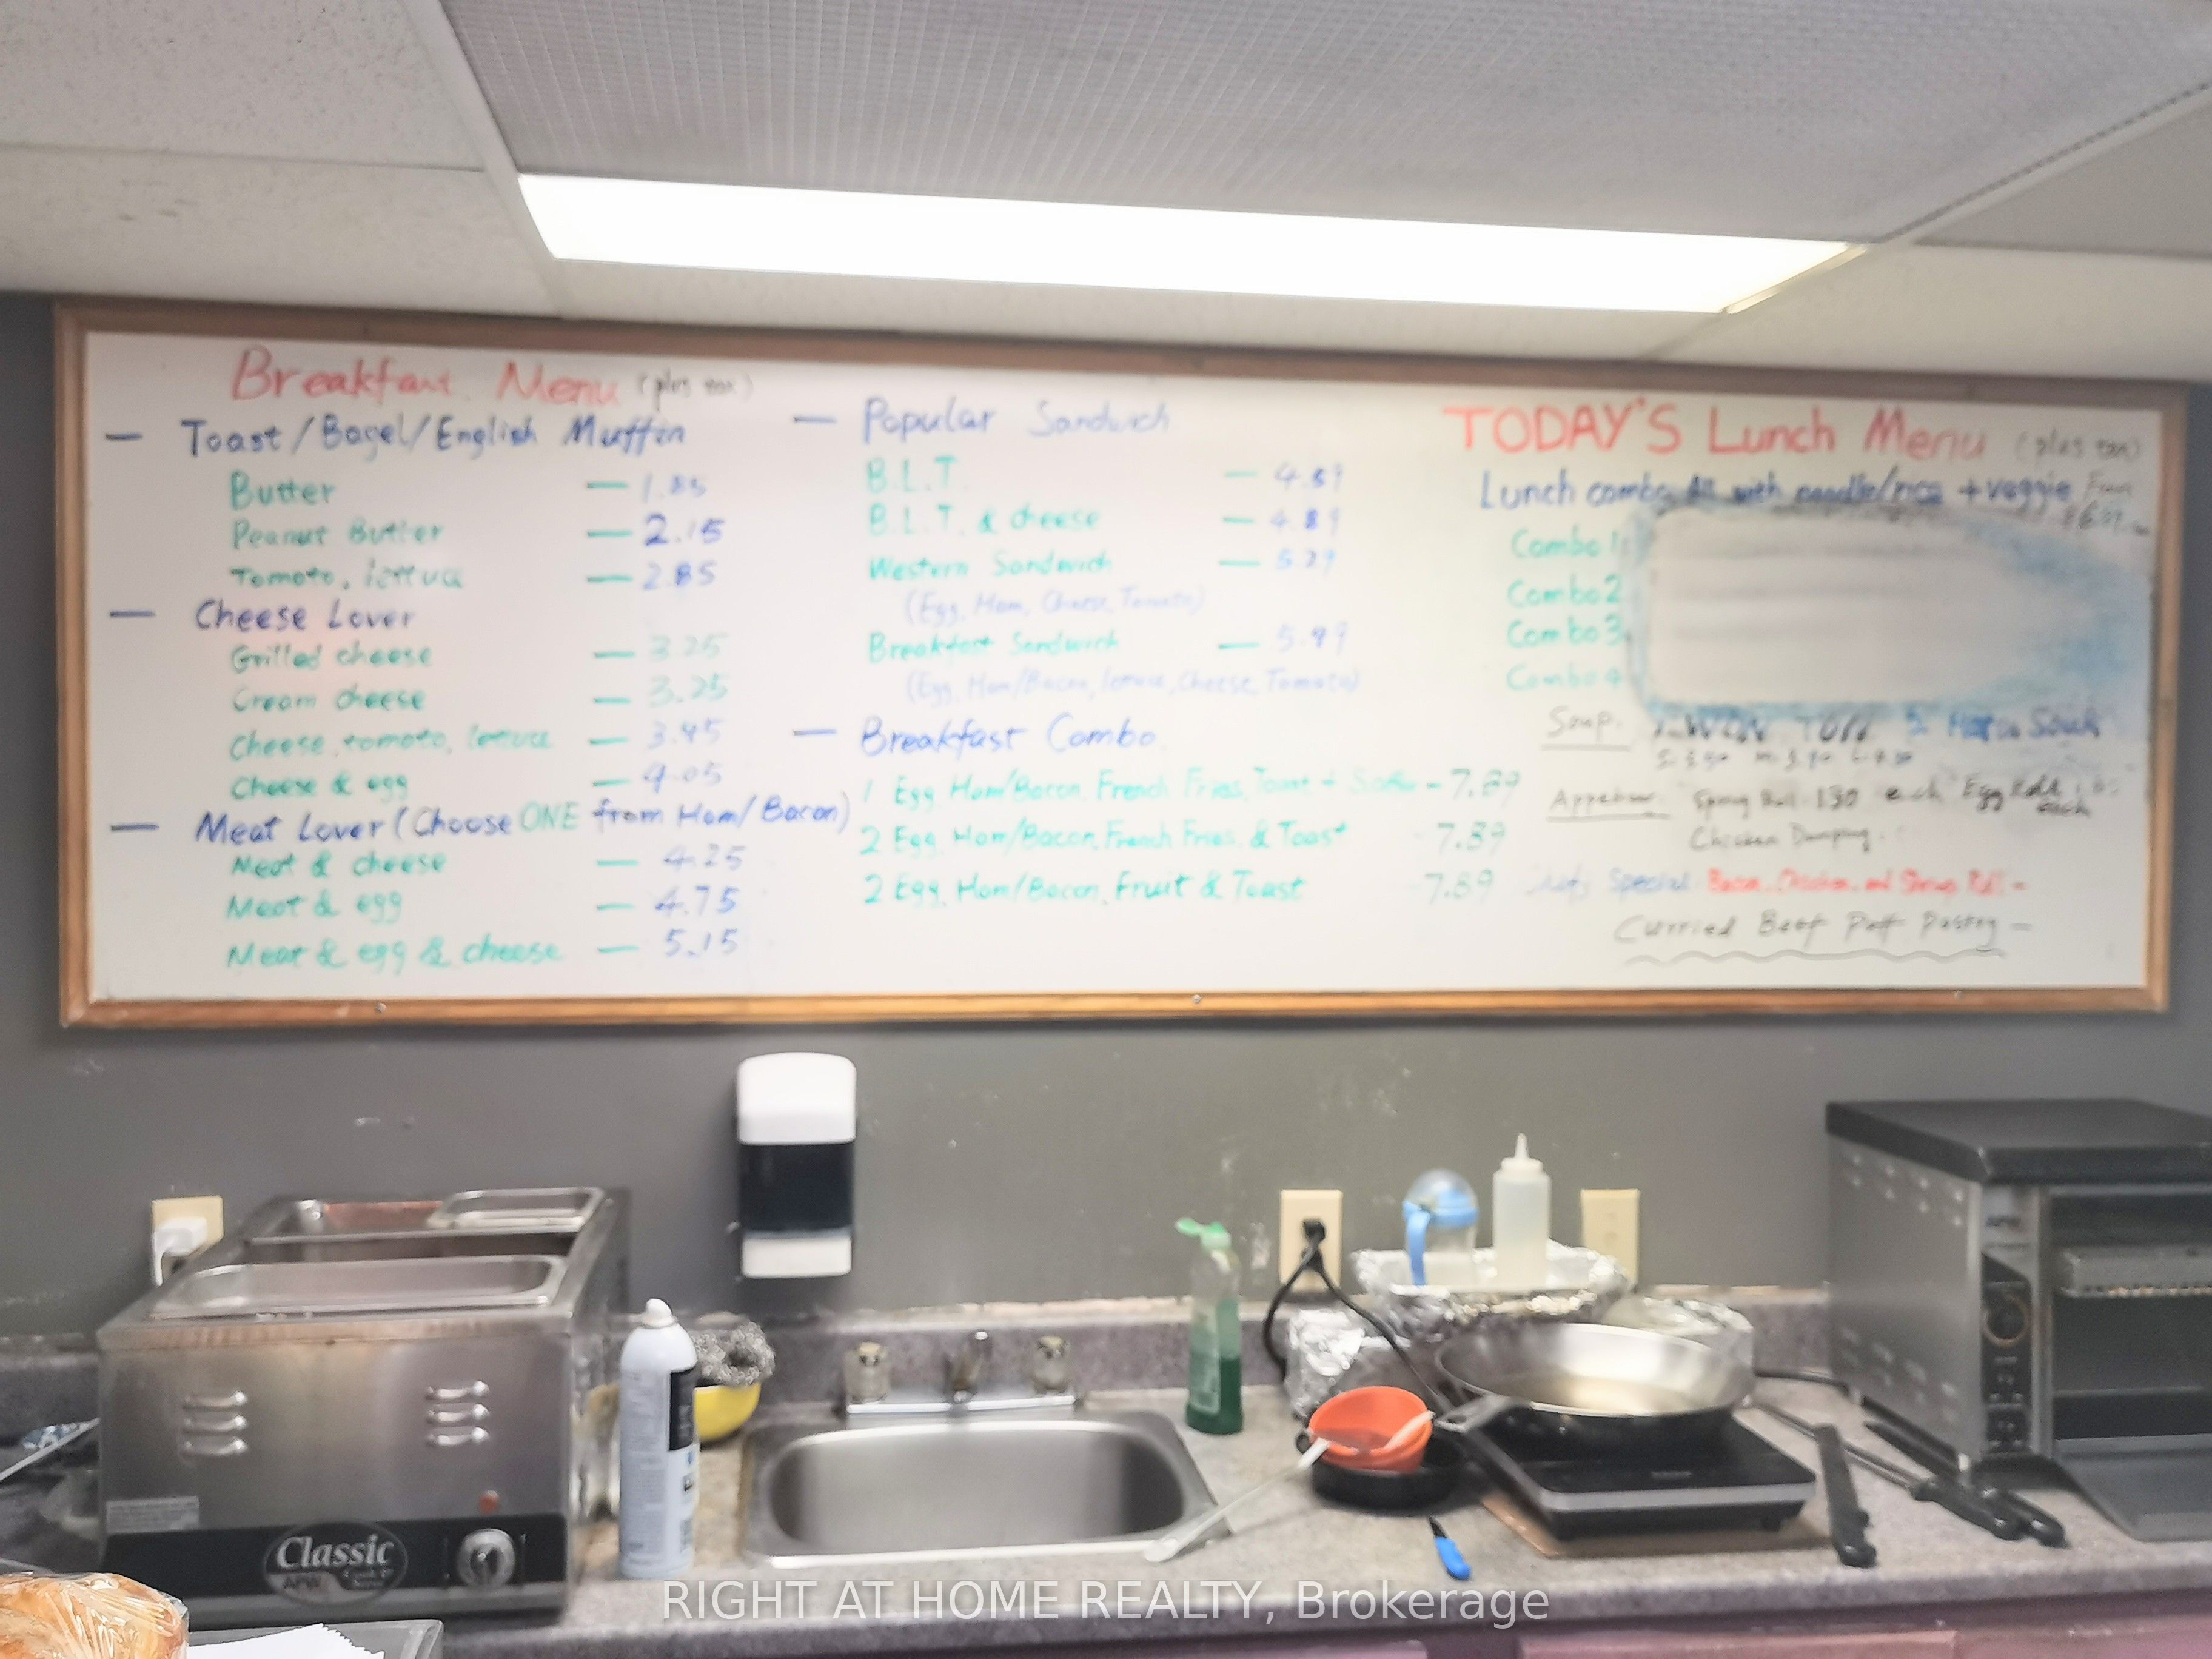 Breakfast Menu (plus tax)
— Toast / Bagel / English Muffin
Butter — 1.85
Peanut Butter — 2.15
Tomato, lettuce — 2.85
— Cheese Lover
Grilled cheese — 3.25
Cream cheese — 3.25
Cheese, tomato, lettuce — 3.95
Cheese & egg — 4.05
— Meat Lover (Choose ONE from Ham/Bacon)
Meat & cheese — 4.25
Meat & egg — 4.75
Meat & egg & cheese — 5.15
— Popular Sandwich
B.L.T. —
B.L.T. & cheese — 4.89
Western Sandwich — 5.29
(Egg, Ham, Cheese, Tomato)
Breakfast Sandwich — 5.99
(Egg, Ham/Bacon, lettuce, Cheese, Tomato)
— Breakfast Combo
1 Egg, Ham/Bacon, French Fries, Toast + - 7.89
2 Egg, Ham/Bacon, French Fries, & Toast - 7.89
2 Egg, Ham/Bacon, Fruit & Toast - 7.89
TODAY'S Lunch Menu (plus tax)
Lunch combo All with noodle/rice + veggie From
Combo 1:
Combo 2
Combo 3
Combo 4
Soup. 1. WON TON 2.
Spring Roll 1.50 each Egg Roll
each
Chicken
Special: Bacon, Chicken, and Shrimp Roll -
Curried Beef Puff Pastry -
Classic
APW
RIGHT AT HOME REALTY, Brokerage